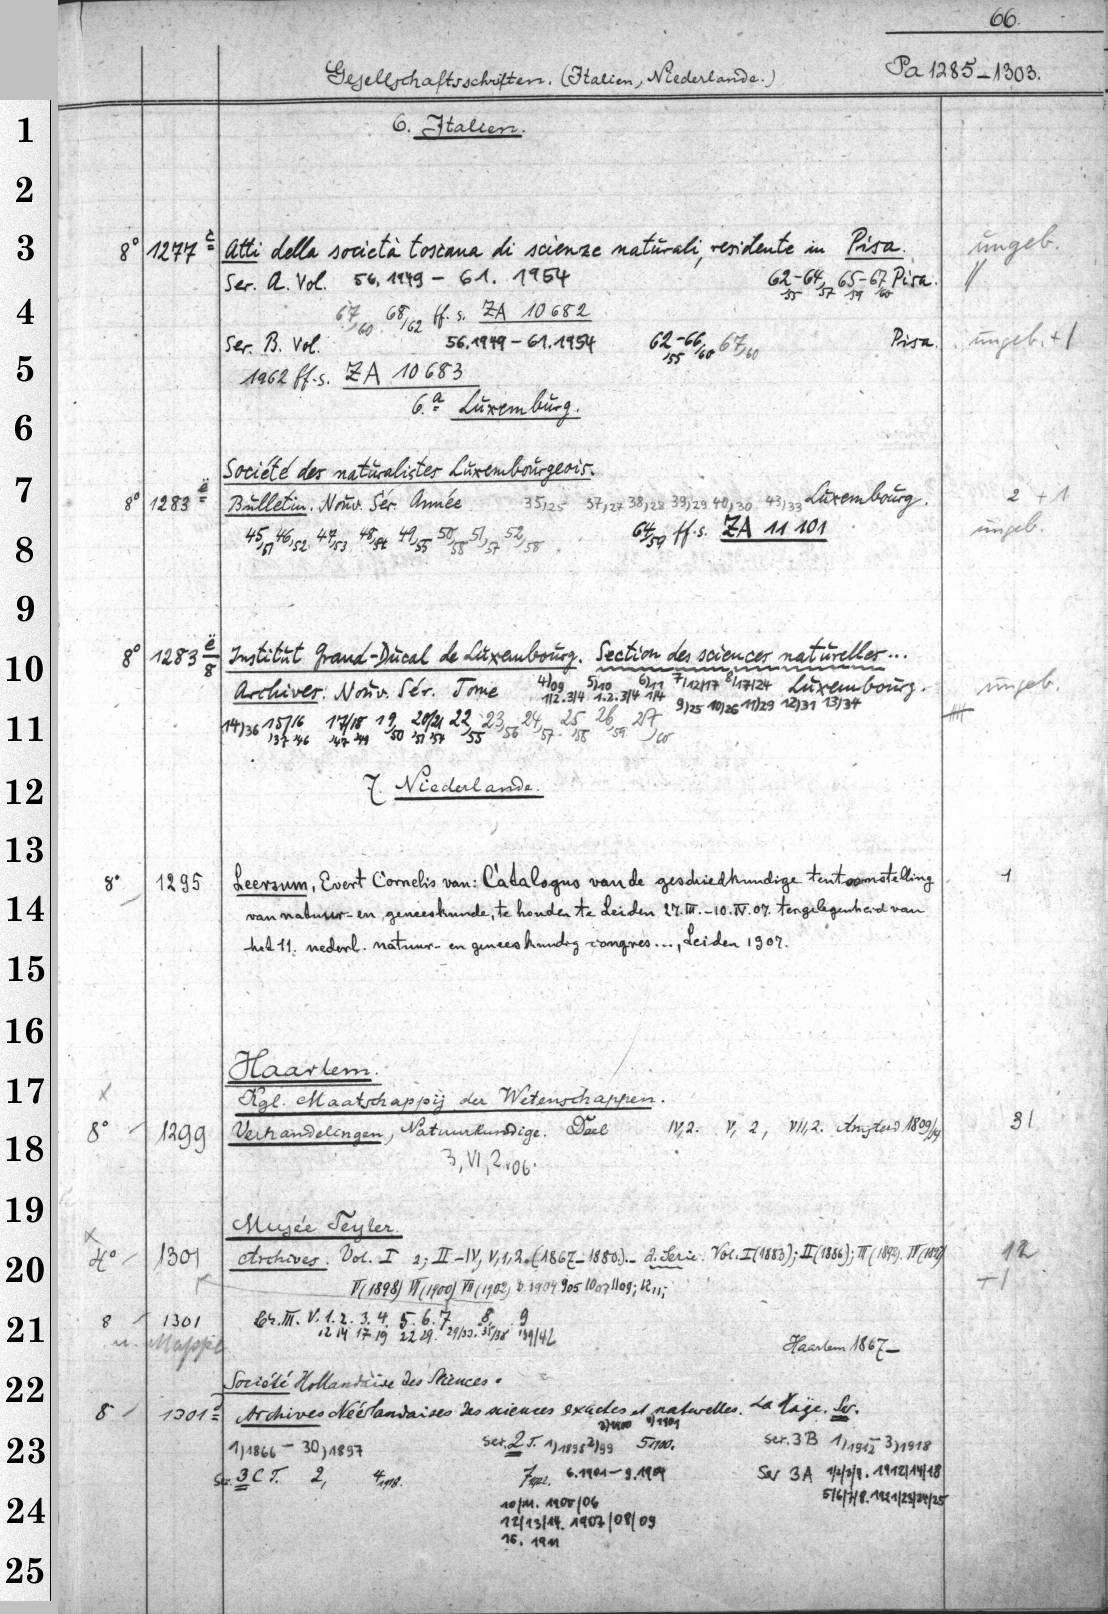 66.
Gesellschaftsschriften. (Italien, Niederlande.) Pa 1285-1303.
1
6. Italien.
2
3 8° 1277 c Atti della società toscana di scienze naturali, residente in Pisa. ungeb.
Ser. A. Vol. 56. 1949 - 61. 1954 62-64, 65-67 Pisa. //
55 57 59 60
4 67/60 68/62 ff. s. ZA 10682
Ser. B. Vol. 56.1949-61.1954 62-66 67/60 Pisa. ungeb. + 1
55 60
5 1962 ff. s. ZA 10683
6.a Luxemburg.
6
Société des naturalistes Luxembourgeois.
7 8° 1283 ë Bulletin. Nouv. Sér. Année 35/25 37/27 38/28 39/29 40/30 43/33 Luxembourg. 2 + 1
8 45/51 46/52 47/53 48/54 49/55 50/56 51/57 52/58 64/59 ff. s. ZA 11 101 ungeb.
9
10 8° 1283 ë/8 Institut Grand-Ducal de Luxembourg. Section des sciences naturelles...
Archives. Nouv. Sér. Tome 4/09 5/10 6/11 7/12/17 8/17/24 Luxembourg. ungeb.
1/2.3/4 1.2.3/4 1/4 9/25 10/26 11/29 12/31 13/34
11 14/36 15/16 17/18 19 20/21 22 23 24 25 26 27
37 46 47 49 50 51 54 55 56 57 58 59 60
12 7. Niederlande.
13
8° 1295 Leersum, Evert Cornelis van: Catalogus van de geschiedkundige tentoonstelling 1
14 van natuur- en geneeskunde, te houden te Leiden 27.III.-10.IV.07. tergelegenheid van
het 11. nederl. natuur- en geneeskundig congres..., Leiden 1907.
15
16
Haarlem.
17 x Kgl. Maatschappij der Wetenschappen.
18 8° 1299 Verhandelingen, Natuurkundige. Deel IV,2. V, 2, VII,2. Amsterd 1809/14 31
3, VI, 2.06.
19
Musée Teyler.
x
20 4° 1301 Archives. Vol. I 2; II-IV, V,1,2. (1867-1880).- 2. Serie: Vol. I (1883); II (1886); III (1893). IV (1894) 12
VI (1898) VI (1900) VII (1902) + 1
21 8 1301 Sér. III. V. 1. 2. 3. 4. 5. 6. 7 8 9
12 14 17 19 22 29. 29/33. 35/38 39/42
u. Mappe Haarlem 1867-
22 Société Hollandaise des Sciences.
8 1301 Archives Néerlandaises des sciences exactes et naturelles. La Haye. Ser.
3)1900 4)1901
23 1)1866 - 30)1897 Ser. 2 T. 1)1898 2)99 5.1900. Ser. 3B 1)1912 - 3)1918
Ser. 3 C T. 2, 4 1918. 7 1902. 6.1901-9.1904 Ser 3A 1/2/3/4. 1912/14/18
5/6/7/8. 1921/23/24/25
24 10/11. 1905/06
12/13/14. 1907/08/09
16. 1911
25